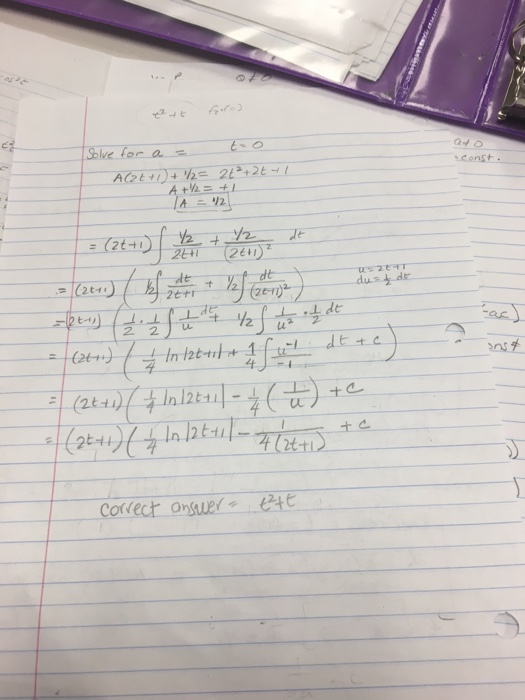 t²+t
Solve for a = t=0
A(2t+1) + 1/2 = 2t²+2t+1
A + 1/2 = +1
A = 1/2
= (2t+1) ∫ 1/2 / 2t+1 + 1/2 / (2t+1)² dt
= (2t+1) ( 1/2 ∫ dt / 2t+1 + 1/2 ∫ dt / (2t+1)² )
u = 2t+1
du = 1/2 dt
= (2t+1) ( 1/2 · 1/2 ∫ 1/u dt + 1/2 ∫ 1/u² · 1/2 dt
= (2t+1) ( 1/4 ln|2t+1| + 1/4 ∫ u⁻¹ / -1 dt + c )
= (2t+1) ( 1/4 ln|2t+1| - 1/4 ( 1/u ) + c
= (2t+1) ( 1/4 ln|2t+1| - 1 / 4(2t+1) + c
correct answer = t²+t
a≠0
const.